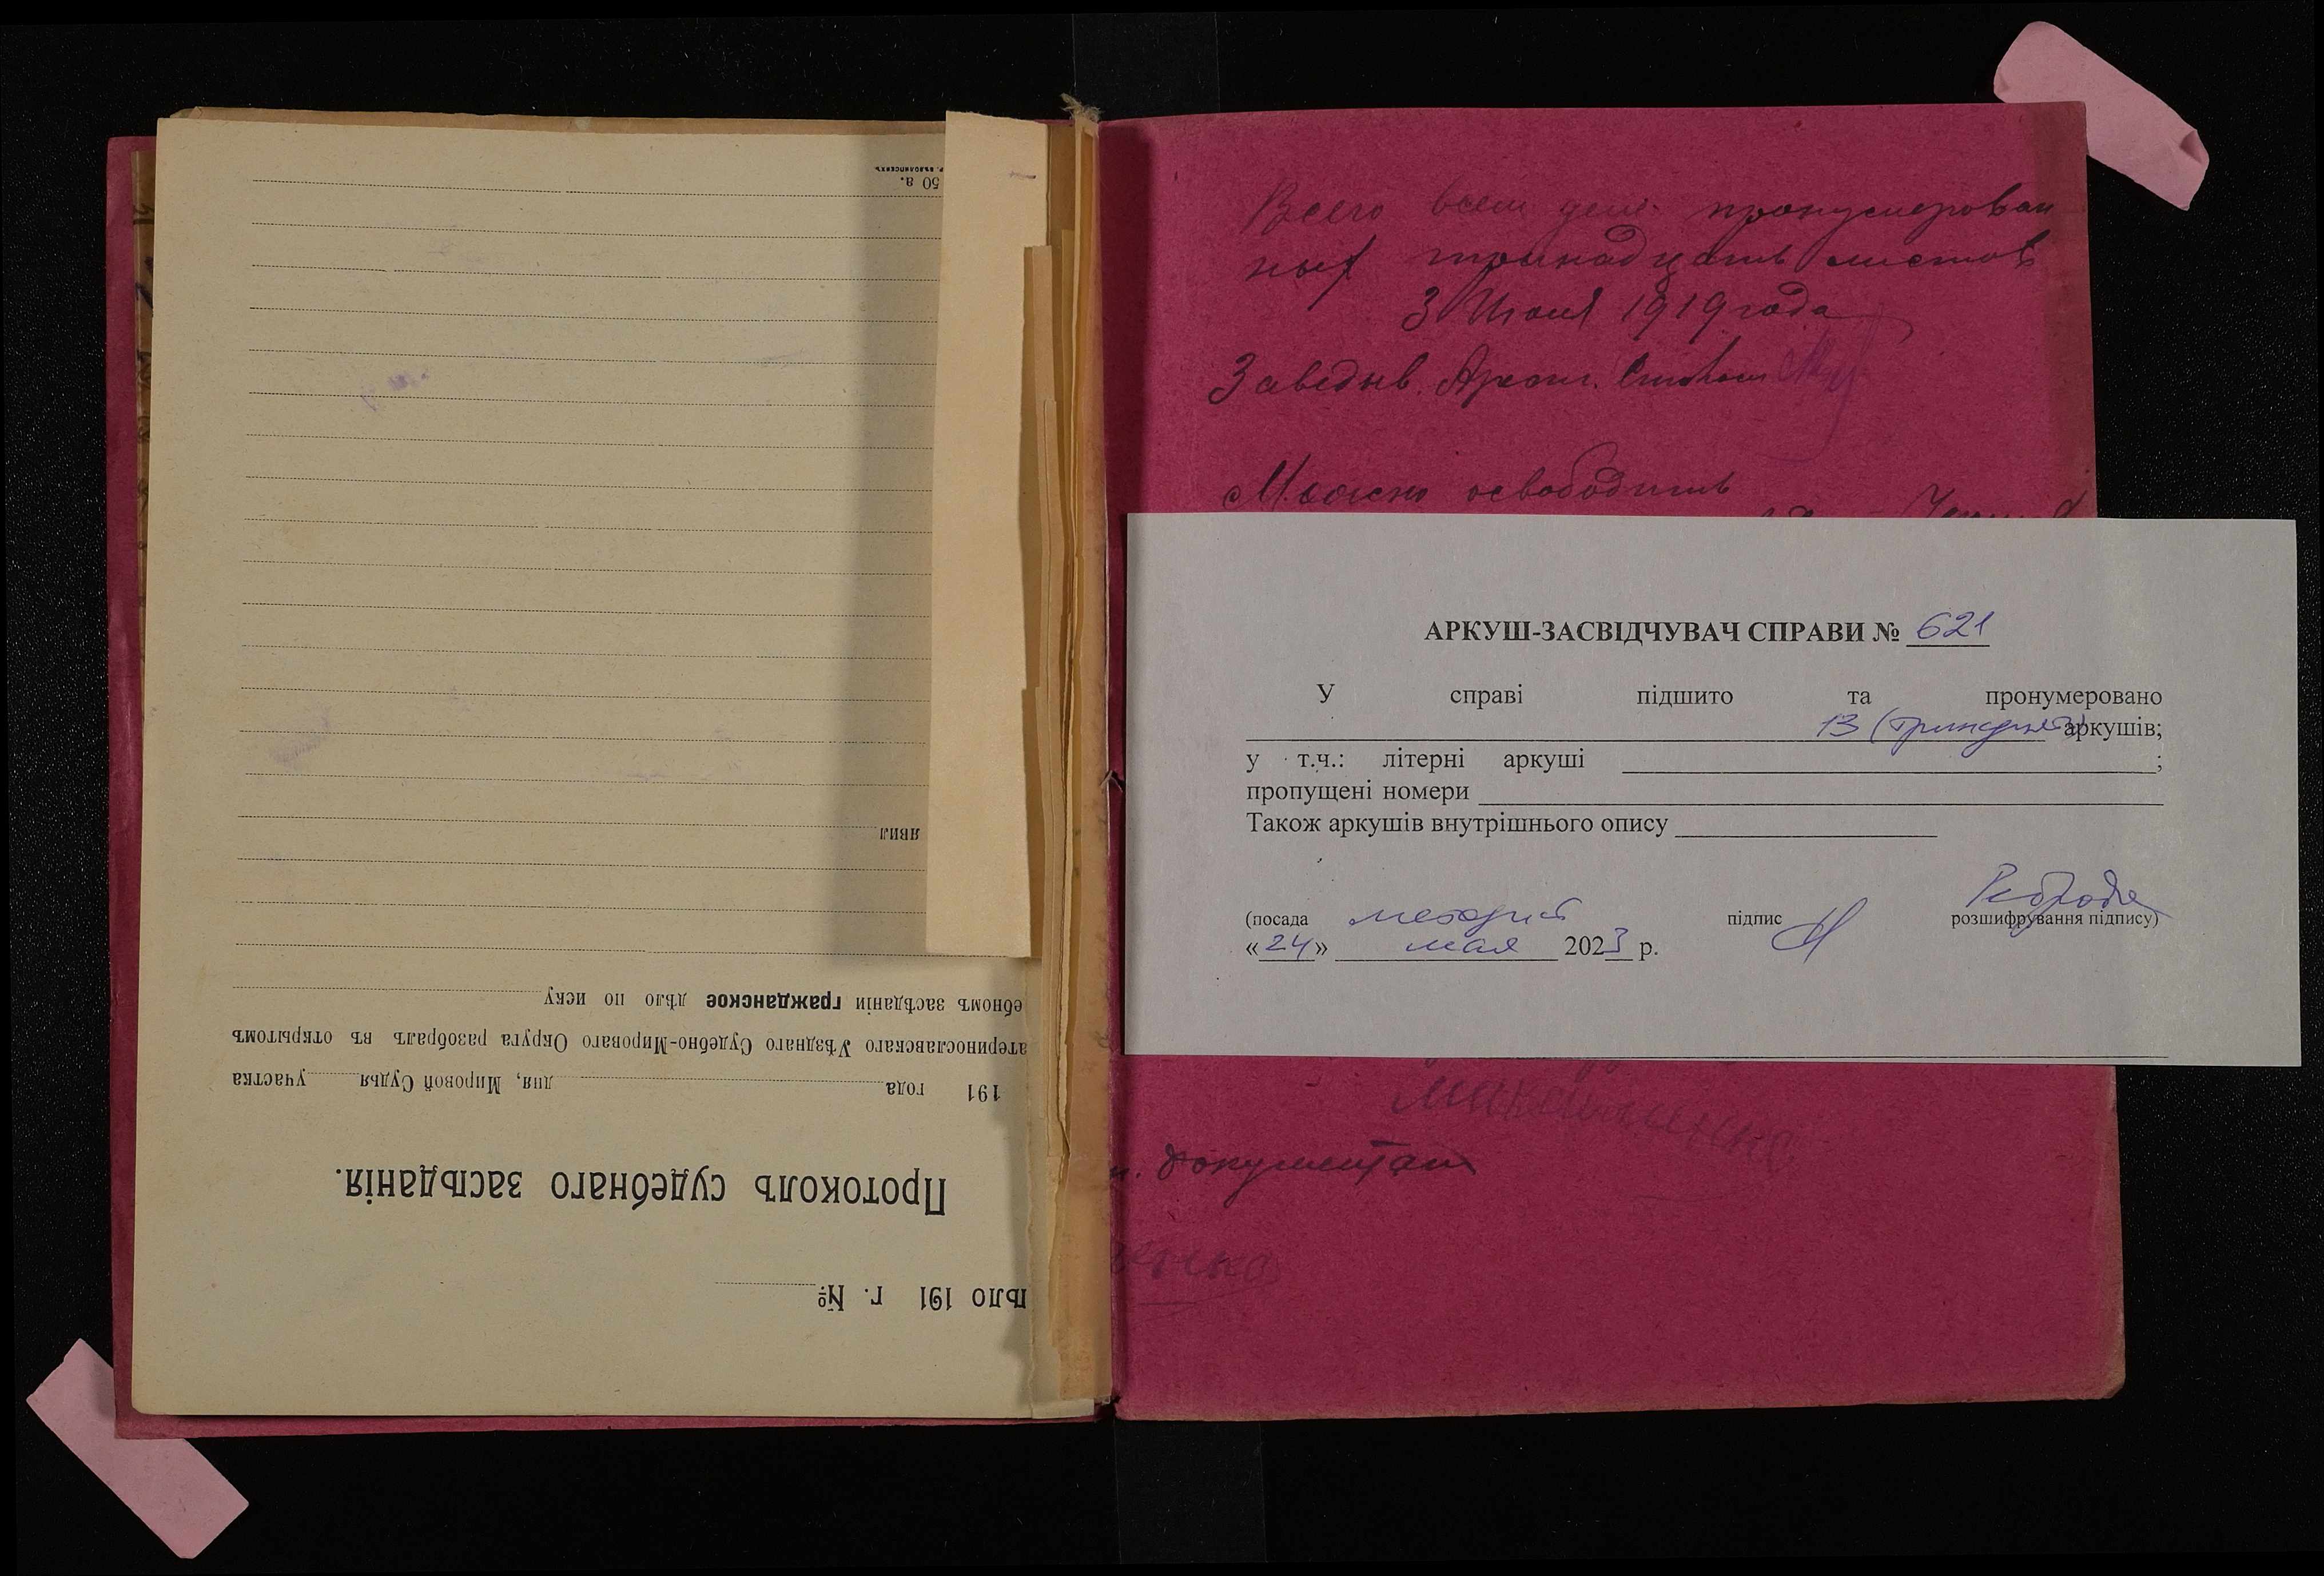 ѣло 191 г. №
Протоколъ судебнаго засѣданія.
191 года дня, Мировой Судья участка
атеринославскаго Уѣзднаго Судебно-Мирового Округа разобралъ въ открытомъ
ебномъ засѣданіи гражданское дѣло по иску
явил
50 а.
Всего всем деле пронумерован
ных тринадцать листов
3 Июня 1919 года
Заведыв. Арест.
Можно освободить
АРКУШ-ЗАСВІДЧУВАЧ СПРАВИ № 621
У справі підшито та пронумеровано
13 (тринадцять) аркушів;
у т.ч.: літерні аркуші ;
пропущені номери
Також аркушів внутрішнього опису
(посада методист підпис розшифрування підпису)
«24» мая 2023 р.
документам
енко